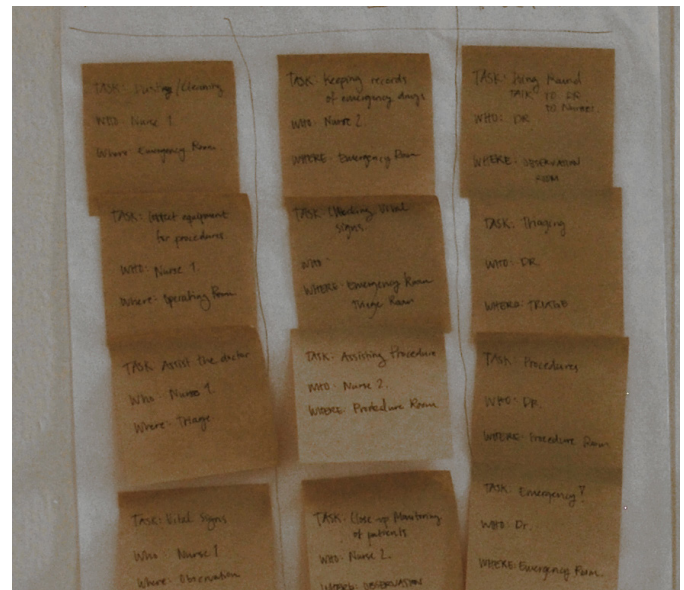 TASK: Dusting/Cleaning
WHO: Nurse 1
Where: Emergency Room
TASK: Collect equipment
for procedures
WHO: Nurse 1
Where: Operating Room
TASK: Assist the doctor
Who: Nurse 1
Where: Triage
TASK: Vital Signs
Who: Nurse 1
Where: Observation
TASK: Keeping records
of emergency drugs
WHO: Nurse 2
WHERE: Emergency Room
TASK: Checking Vital
signs
WHO:
WHERE: Emergency Room
Triage Room
TASK: Assisting Procedure
WHO: Nurse 2.
WHERE: Procedure Room
TASK: Close-up Monitoring
of patients
WHO: Nurse 2.
WHERE: OBSERVATION
TASK: Round
TALK TO DR.
TO NURSES.
WHO: DR
WHERE: OBSERVATION
ROOM
TASK: Triaging
WHO: DR.
WHERE: TRIAGE
TASK: Procedures
WHO: DR.
WHERE: Procedure Room
TASK: Emergency?
WHO: Dr.
WHERE: Emergency Room